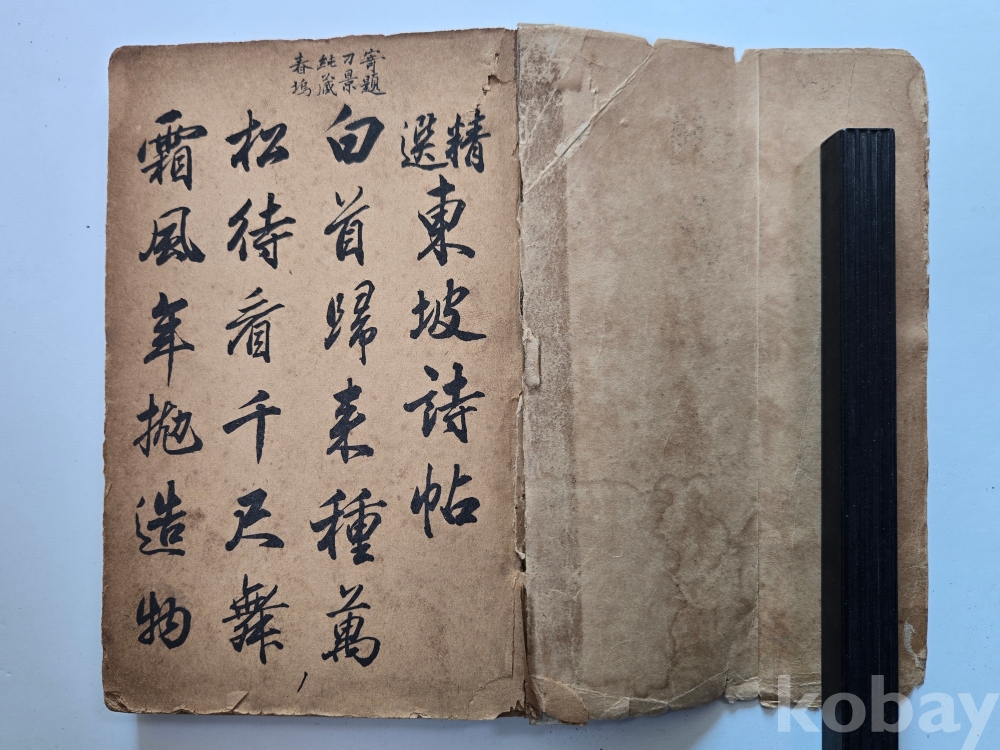 精選東坡詩帖
寄題刁景純藏春塢
白首歸来種萬
松待看千尺舞
霜風年抛造物
kobay